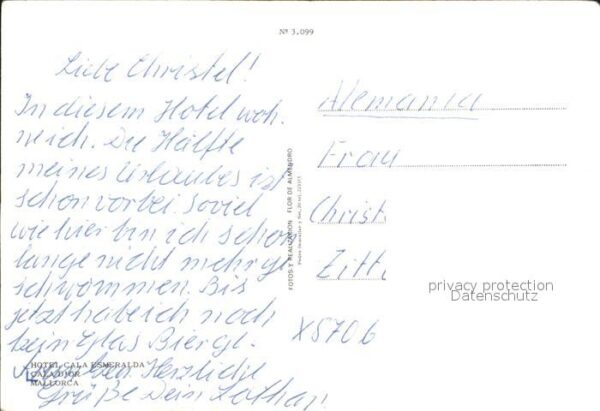 Nº 3.099
Liebe Christel!
In diesem Hotel woh-
ne ich. Die Hälfte
meines Urlaubes ist
schon vorbei. Soviel
wie hier bin ich schon
lange nicht mehr ge-
schwommen. Bis
jetzt habe ich noch
kein Glas Bier ge-
Herzliche
Grüße Dein Lothar
HOTEL CALA ESMERALDA
CALA D'OR
MALLORCA
FOTOS Y REALIZACION FLOR DE ALMENDRO
Alemania
Frau
Christ
Zitt
X5706
privacy protection
Datenschutz